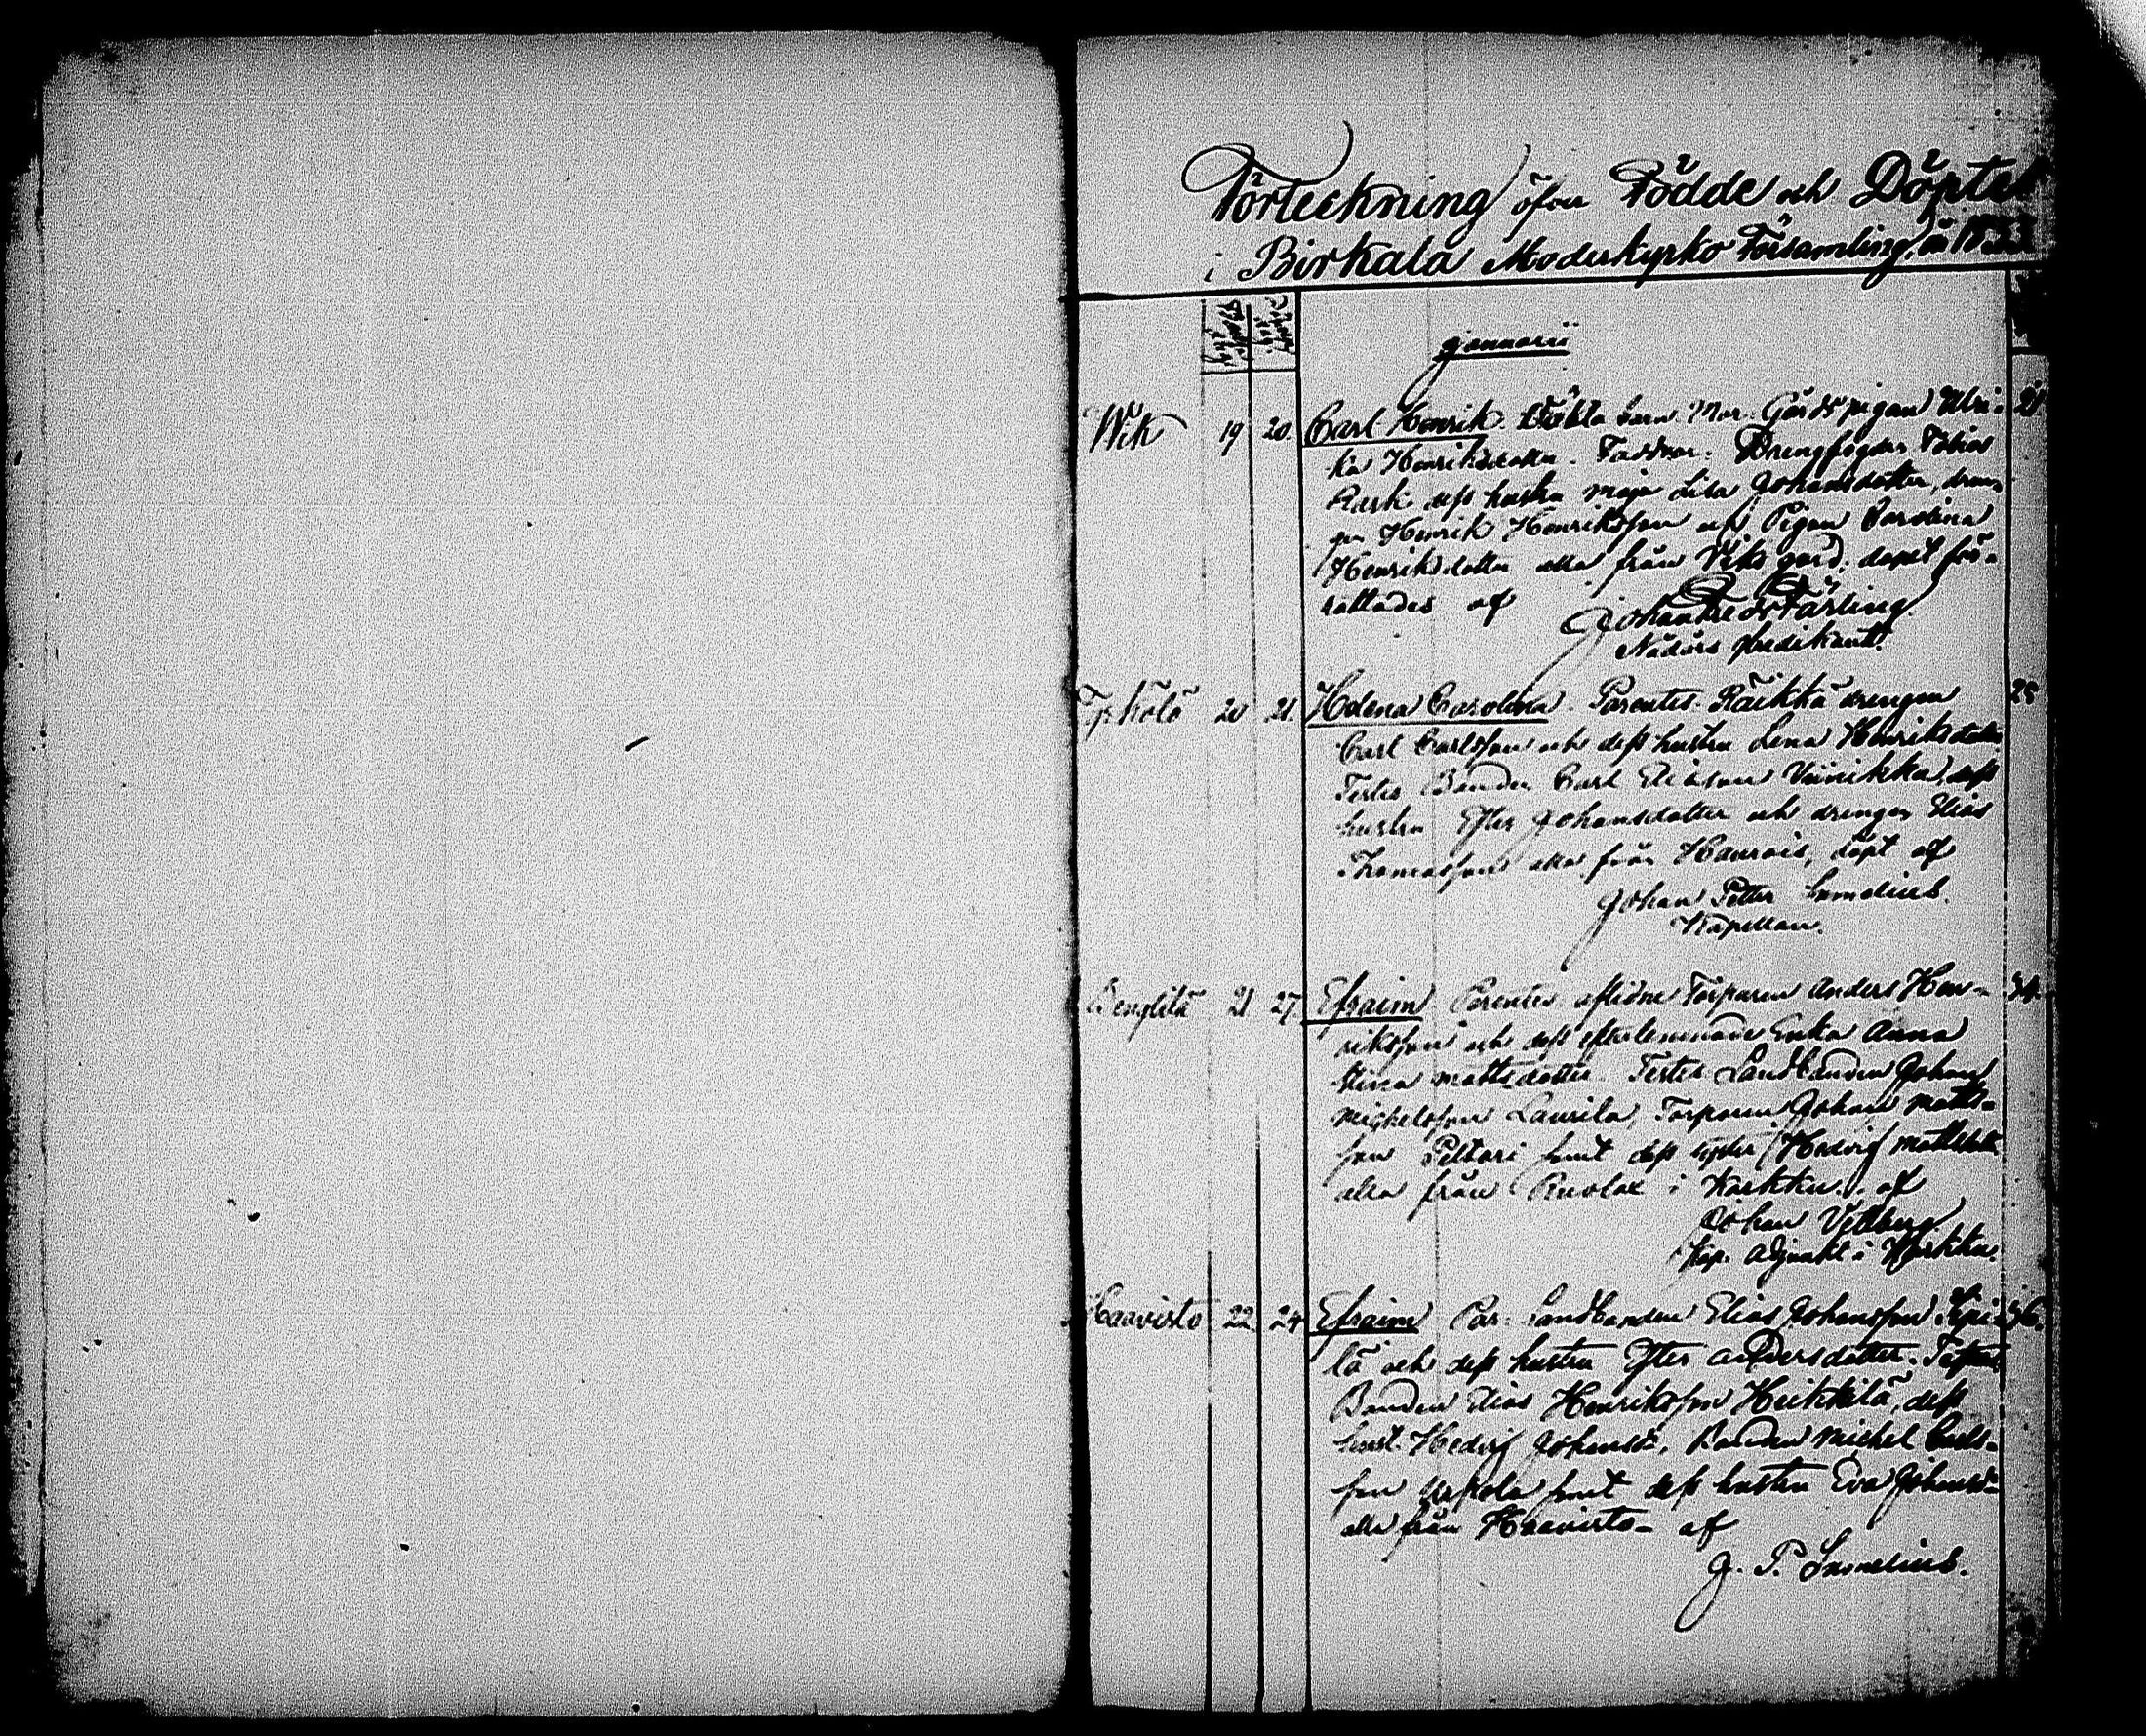 Förteckning öfver Födde och Döpte
i Birkala Moderkyrko Församling, år 1833
Januarii
Wik 19 20. Carl Henrik. Oäkta barn. Mor. Gårds pigan Ulri- 21
ka Henriksdotter. Faddrar. Drengfogden
Rask dess hustru Maja Lisa Johansdotter, dren-
gen Henrik Henriksson och Pigan Carolina
Henriksdotter alla från Wiks gård, döpt för-
rättades af
Johan Färling
Nådårs predikant.
20 21. Helena Carolina. Parentes. Räikkä drengen 25
Carl Carlsson och dess hustru Lena Henriksdotter
Testes Bonden Carl Eliasson Viinikka, dess
hustru Ester Johansdotter och drengen Elias
Thomasson alla från Haurais, döpt af
Johan Petter
Kapellan.
21 27. Efraim Parentes aflidne Torparen Anders Hen-
riksson och dess efterlemnade Enka Anna
Stina Mattsdotter. Testes Landbonden Johan
Michelsson Laurila, Torparen Johan Matts-
son Peltari samt dess syster Hedvig Mattsdott.
alla från i Karkku. af
Johan
Kap. Adjunkt i Karkku.
Haavisto 22. 24 Efraim Par: Landbonden Elias Johansson Sipi- 36.
lä och dess hustru Ester Andersdotter. Testes
Bonden Elias Henriksson Heikkilä, dess
hust. Hedvig Johansd., Bonden Michel Carls-
son samt dess hustru Eva Johansd.
alla från Haavisto - af
J. P.